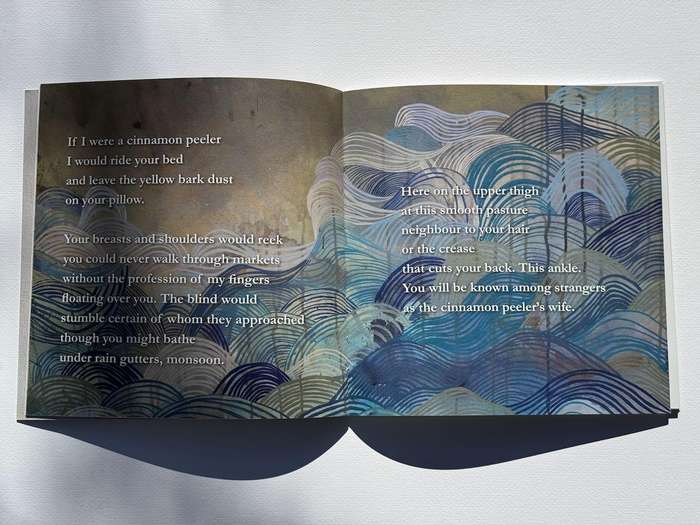 If I were a cinnamon peeler
I would ride your bed
and leave the yellow bark dust
on your pillow.
Your breasts and shoulders would reek
you could never walk through markets
without the profession of my fingers
floating over you. The blind would
stumble certain of whom they approached
though you might bathe
under rain gutters, monsoon.
Here on the upper thigh
at this smooth pasture
neighbour to your hair
or the crease
that cuts your back. This ankle.
You will be known among strangers
as the cinnamon peeler's wife.